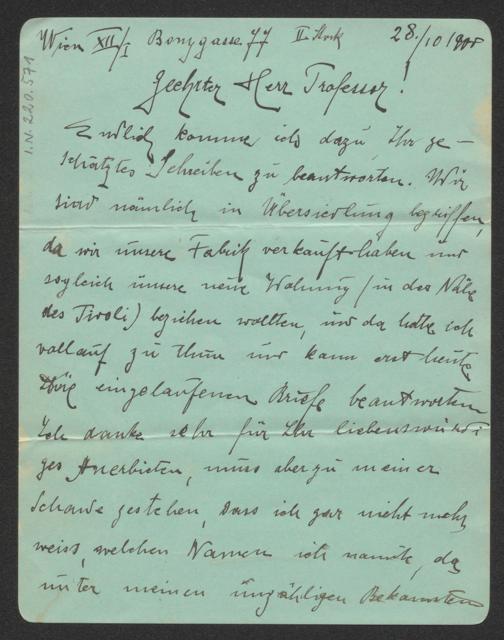 Wien XII/1 Bonygasse 77 II. Stock 28./10 1908
Geehrter Herr Professor!
Endlich komme ich dazu, Ihr ge-
schätztes Schreiben zu beantworten. Wir
sind nämlich in Übersiedlung begriffen,
da wir unsere Fabrik verkauft haben und
sogleich unsere neue Wohnung (in der Nähe
des Tivoli) beziehen wollten, und da hatte ich
vollauf zu thun und kann erst heute
die eingelaufenen Briefe beantworten
Ich danke sehr für Ihr liebenswürdi-
ges Anerbieten, muss aber zu meiner
Schande gestehen, dass ich gar nicht mehr
weiss, welchen Namen ich nannte, da
unter meinen unzähligen Bekannten
I.N. 220.571